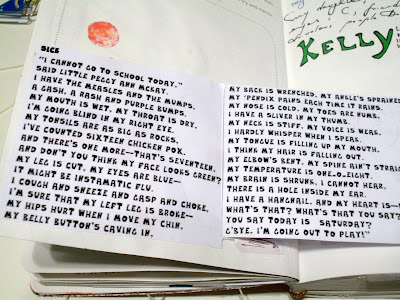 KELLY
SICK
"I CANNOT GO TO SCHOOL TODAY,"
SAID LITTLE PEGGY ANN MCKAY.
I HAVE THE MEASLES AND THE MUMPS,
A GASH, A RASH AND PURPLE BUMPS.
MY MOUTH IS WET, MY THROAT IS DRY,
I'M GOING BLIND IN MY RIGHT EYE.
MY TONSILS ARE AS BIG AS ROCKS,
I'VE COUNTED SIXTEEN CHICKEN POX
AND THERE'S ONE MORE—THAT'S SEVENTEEN,
AND DON'T YOU THINK MY FACE LOOKS GREEN?
MY LEG IS CUT, MY EYES ARE BLUE—
IT MIGHT BE INSTAMATIC FLU.
I COUGH AND SNEEZE AND GASP AND CHOKE,
I'M SURE THAT MY LEFT LEG IS BROKE—
MY HIPS HURT WHEN I MOVE MY CHIN,
MY BELLY BUTTON'S CAVING IN,
MY BACK IS WRENCHED, MY ANKLE'S SPRAINED,
MY 'PENDIX PAINS EACH TIME IT RAINS.
MY NOSE IS COLD, MY TOES ARE NUMB,
I HAVE A SLIVER IN MY THUMB.
MY NECK IS STIFF, MY VOICE IS WEAK,
I HARDLY WHISPER WHEN I SPEAK.
MY TONGUE IS FILLING UP MY MOUTH,
I THINK MY HAIR IS FALLING OUT.
MY ELBOW'S BENT, MY SPINE AIN'T
MY TEMPERATURE IS ONE-O-EIGHT.
MY BRAIN IS SHRUNK, I CANNOT HEAR,
THERE IS A HOLE INSIDE MY EAR.
I HAVE A HANGNAIL, AND MY HEART IS—
WHAT'S THAT? WHAT'S THAT YOU SAY?
YOU SAY TODAY IS SATURDAY?
G'BYE, I'M GOING OUT TO PLAY!"